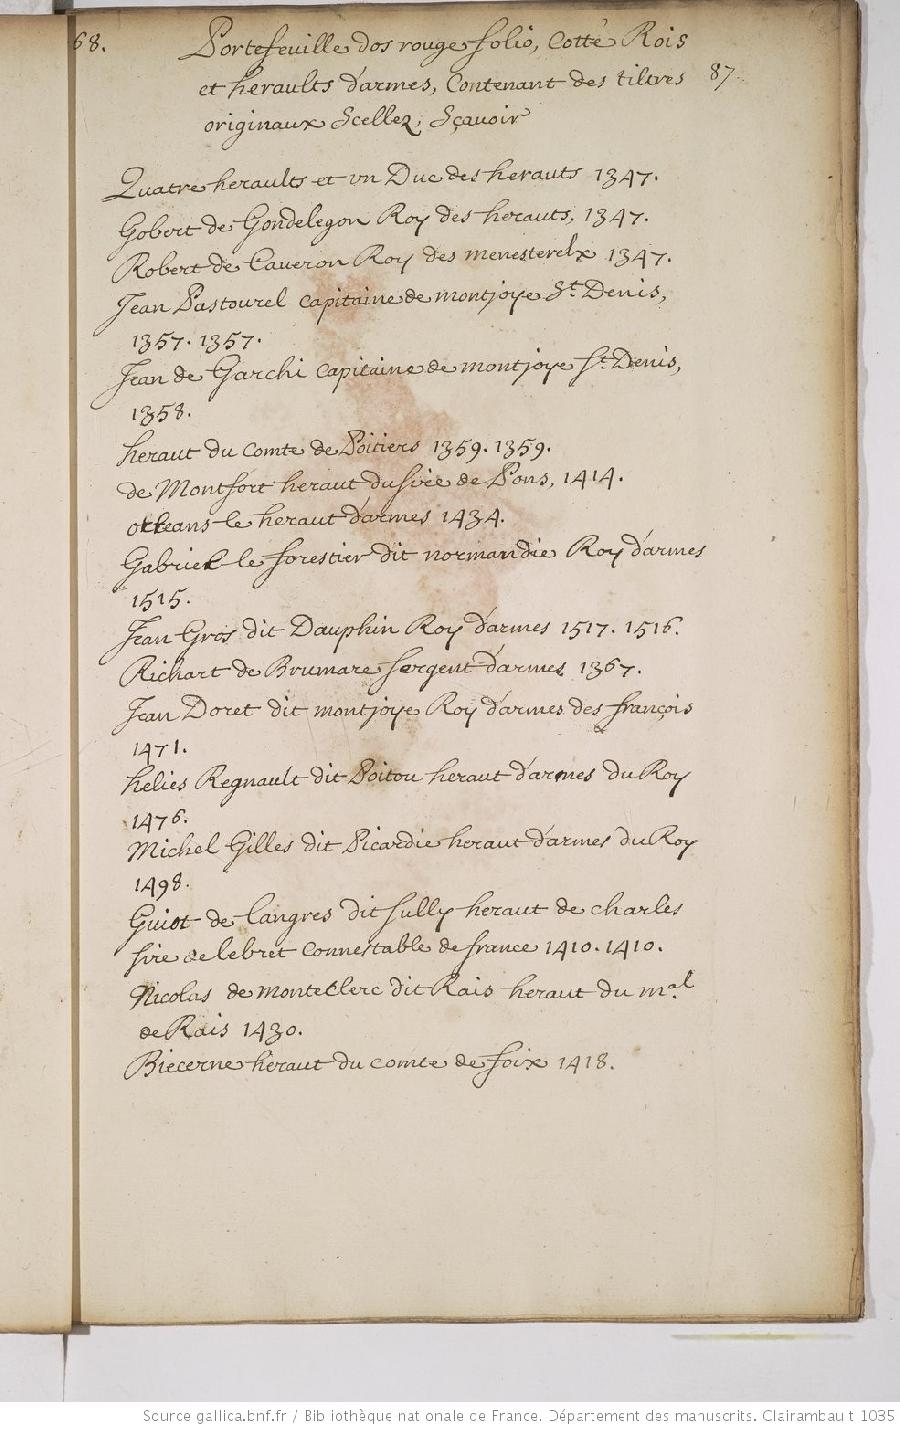 68.
Portefeuille dos rouge folio, Cotté Rois
et heraults d'armes, Contenant des tiltres 87
originaux Scellez, Sçavoir
Quatre heraults et un Duc des herauts 1347.
Gobert de Gondelegon Roy des herauts, 1347.
Robert de Caveron Roy des menesterelx 1347.
Jean Pastourel capitaine de montjoye St. Denis,
1357. 1357.
Jean de Garchi capitaine de montjoye St. Denis,
1358.
heraut du comte de Poitiers 1359. 1359.
de Montfort heraut du sire de Pons, 1414.
orleans le heraut d'armes 1434.
Gabriel le forestier dit normandie Roy d'armes
1515.
Jean Gros dit Dauphin Roy d'armes 1517. 1516.
Richart de Brumare sergent d'armes 1367.
Jean Doret dit montjoye Roy d'armes des françois
1471.
helies Regnault dit Poitou heraut d'armes du Roy
1476.
Michel Gilles dit Picardie heraut d'armes du Roy
1498.
Guiot de Langres dit sully heraut de charles
sire de lebret connestable de france 1410. 1410.
Nicolas de monteclerc dit Rais heraut du mal.
de Rais 1430.
Biecerne heraut du comte de foix 1418.
Source gallica.bnf.fr / Bibliothèque nationale de France. Département des manuscrits. Clairambault 1035